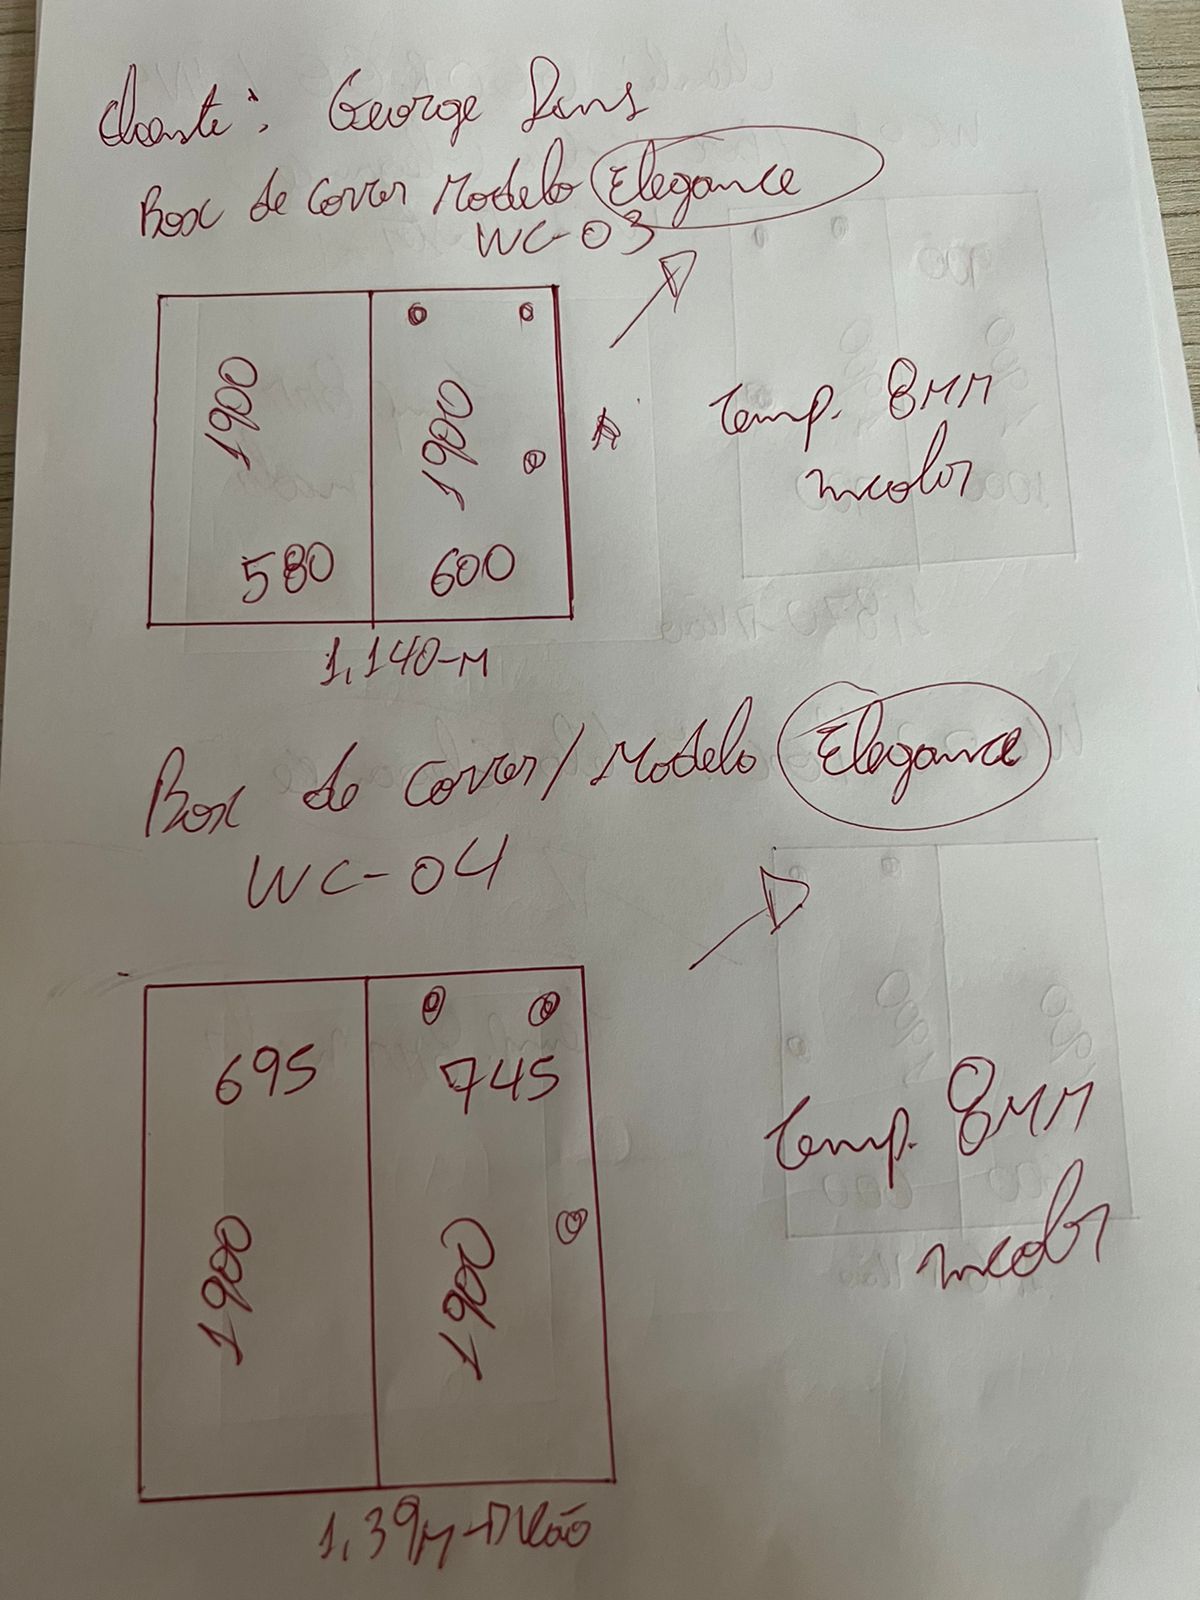 Cliente: George Lins
Box de Correr Modelo Elegance
WC-03
1900
1900
580
600
1,140-M
Temp. 8MM
incolor
Box de Correr/Modelo Elegance
WC-04
695
745
1900
1900
1,39M-
Temp. 8MM
incolor